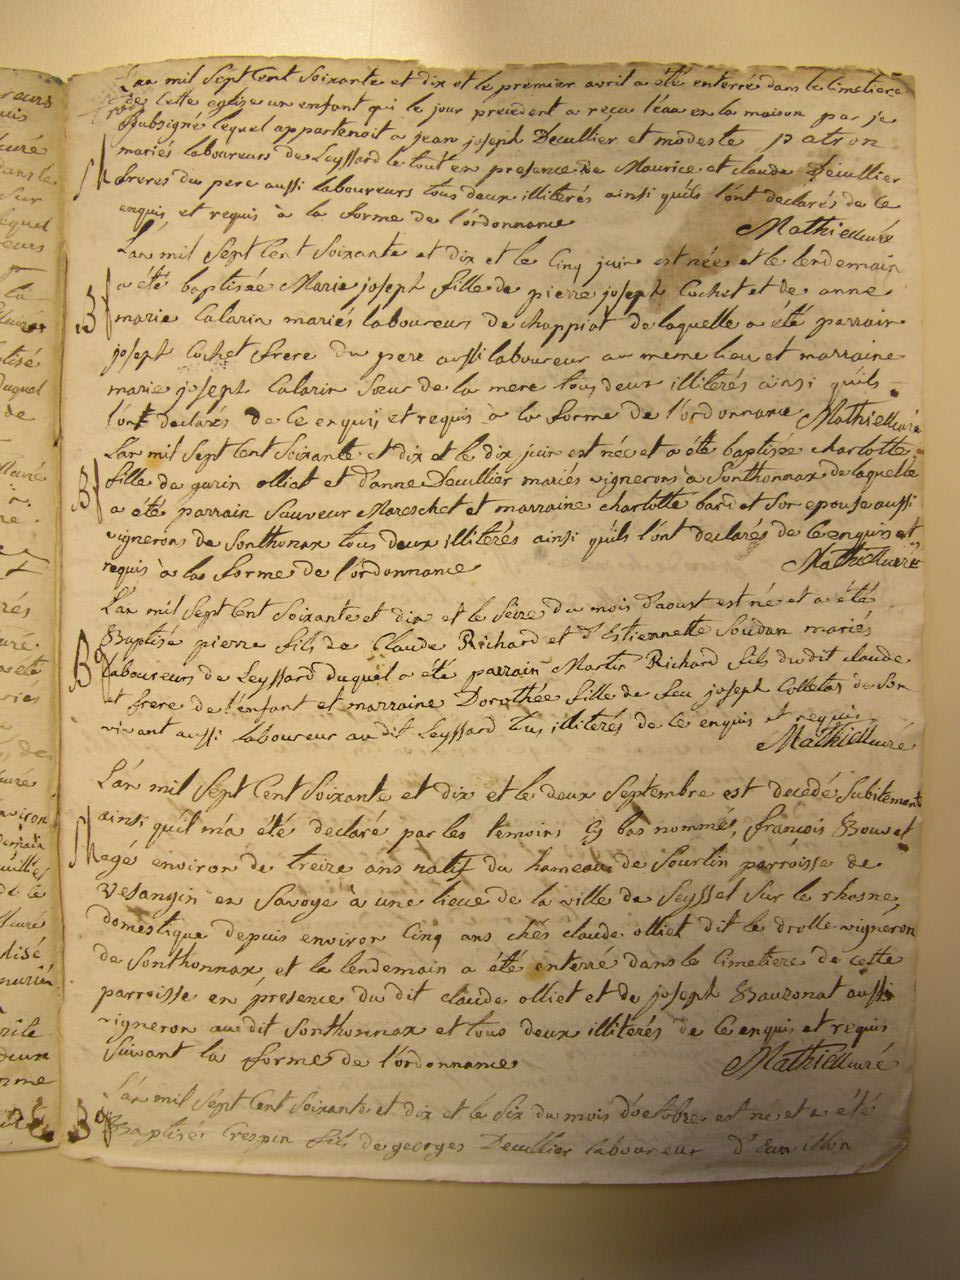 L'an mil Sept Cent Soixante et dix et le premier avril a été enterré dans le Cimetiere
de Cette eglise un enfant qui le jour precedent a reçu l'eau en la maison par je
Soubsigné lequel appartenoit a jean joseph Decullier et modeste patron
mariés laboureurs de Leyssard le tout en presence de Maurice et claude Decullier
freres du pere aussi laboureurs tous deux illiterés ainsi qu'ils l'ont declarés de ce
enquis et requis à la forme de l'ordonnance Mathieu curé
L'an mil Sept Cent Soixante et dix et le Cinq juin est née et le lendemain
Bf a été baptisée Marie joseph fille de pierre joseph Cochet et de anne
marie Calarin mariés laboureurs de choppiat de laquelle a été parrain
joseph Cochet frere du pere aussi laboureur au meme lieu et marraine
marie joseph Calarin Sœur de la mere tous deux illiterés ainsi qu'ils
l'ont declarés de Ce enquis et requis à la forme de l'ordonnance Mathieu curé
L'an mil Sept Cent Soixante et dix et le dix juin est née et a été baptisée charlotte
Bf fille de garin olliat et d'anne Decullier mariés vignerons à Sonthonnax de laquelle
a été parrain Sauveur Mareschet et marraine charlotte bardet Son epouse aussi
vignerons de Sonthonax tous deux illiterés ainsi qu'ils l'ont declarés de Ce enquis et
requis à la forme de l'ordonnance Mathieu curé
L'an mil Sept Cent Soixante et dix et le Seize du mois d'aoust est né et a été
Baptisé pierre fils de Claude Richard et d'Estiennette Soudan mariés
laboureurs de Leyssard duquel a été parrain Martin Richard fils du dit claude
et frere de l'enfant et marraine Dorothée fille de feu joseph Colletaz de Son
vivant aussi laboureur au dit Leyssard tous illiterés de Ce enquis et requis
Mathieu curé
L'an mil Sept Cent Soixante et dix et le deux Septembre est decedé Subitement
ainsi qu'il m'a été declaré par les temoins Cy bas nommés, françois Bouvet
agé environ de treize ans natif du hameau de Sourlin parroisse de
Vesangin en Savoye à une lieue de la ville de Seyssel Sur le rhosne,
domestique depuis environ Cinq ans chés claude olliet dit le drolle vigneron
de Sonthonnax, et le lendemain a été enterré dans le Cimetiere de cette
parroisse en presence du dit claude olliet et de joseph Bauzonat aussi
vigneron au dit Sonthonnax et tous deux illiterés de Ce enquis et requis
Suivant la forme de l'ordonnance Mathieu curé
L'an mil Sept Cent Soixante et dix et le Six du mois d'octobre est né et a été
Baptisé Crespin fils de georges Decullier laboureur